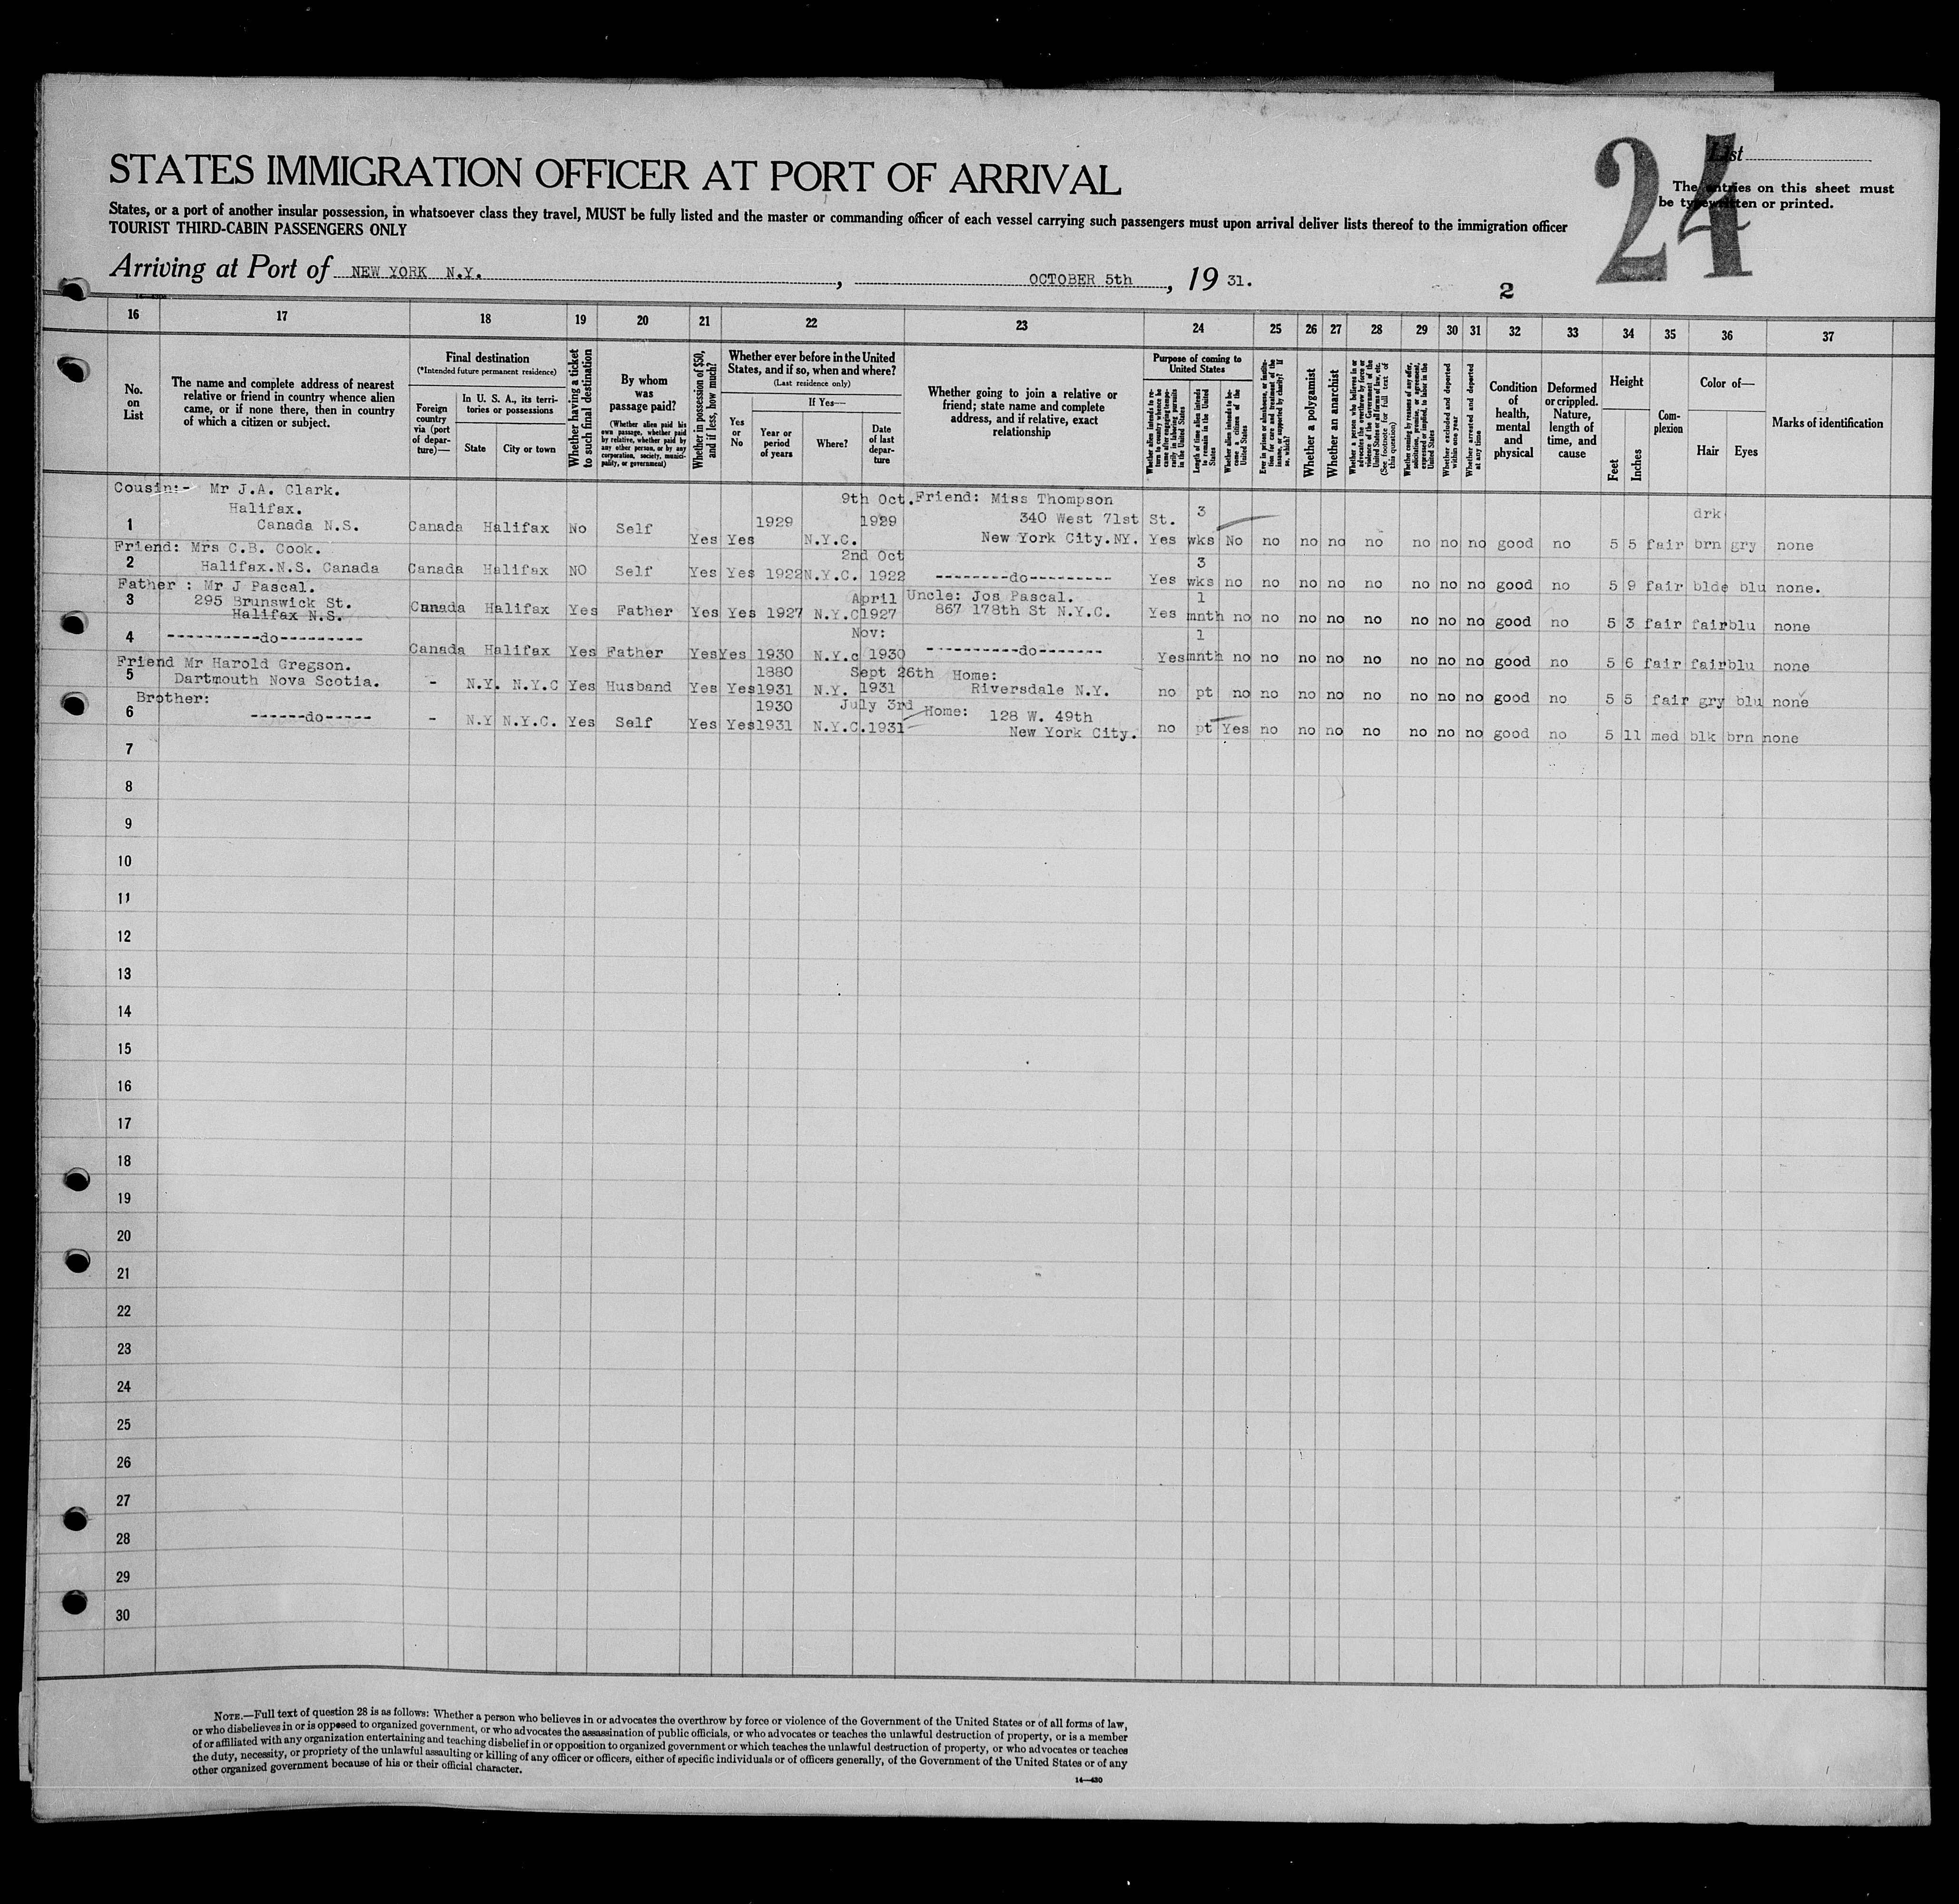 24
List
The entries on this sheet must
be typewritten or printed.
STATES IMMIGRATION OFFICER AT PORT OF ARRIVAL
States, or a port of another insular possession, in whatsoever class they travel, MUST be fully listed and the master or commanding officer of each vessel carrying such passengers must upon arrival deliver lists thereof to the immigration officer
TOURIST THIRD-CABIN PASSENGERS ONLY
Arriving at Port of NEW YORK N.Y. , OCTOBER 5th , 19 31.
2
16 17 18 19 20 21 22 23 24 25 26 27 28 29 30 31 32 33 34 35 36 37
No. on List
The name and complete address of nearest relative or friend in country whence alien came, or if none there, then in country of which a citizen or subject.
Final destination
(*Intended future permanent residence)
Foreign country via (port of departure)—
In U. S. A., its territories or possessions
State City or town
Whether having a ticket to such final destination
By whom was passage paid?
(Whether alien paid his own passage, whether paid by relative, whether paid by any other person, or by any corporation, society, municipality, or government)
Whether in possession of $50, and if less, how much?
Whether ever before in the United States, and if so, when and where?
(Last residence only)
Yes or No
If Yes—
Year or period of years
Where?
Date of last departure
Whether going to join a relative or friend; state name and complete address, and if relative, exact relationship
Purpose of coming to United States
Whether alien intends to return to country whence he came after engaging temporarily in laboring pursuits in the United States
Length of time alien intends to remain in the United States
Whether alien intends to become a citizen of the United States
Ever in prison or almshouse, or institution for care and treatment of the insane, or supported by charity? If so, which?
Whether a polygamist
Whether an anarchist
Whether a person who believes in or advocates the overthrow by force or violence of the Government of the United States or all forms of law, etc. (See footnote for full text of this question)
Whether coming by reasons of any offer, solicitation, promise, or agreement, expressed or implied, to labor in the United States
Whether excluded and deported within one year
Whether arrested and deported at any time
Condition of health, mental and physical
Deformed or crippled. Nature, length of time, and cause
Height
Feet Inches
Complexion
Color of—
Hair Eyes
Marks of identification
Cousin:- Mr J.A. Clark. 9th Oct. Friend: Miss Thompson
Halifax. 340 West 71st St. 3 drk
1 Canada N.S. Canada Halifax No Self Yes Yes 1929 N.Y.C. 1929 New York City.NY. Yes wks No no no no no no no no good no 5 5 fair brn gry none
Friend: Mrs C.B. Cook. 2nd Oct 3
2 Halifax.N.S. Canada Canada Halifax NO Self Yes Yes 1922 N.Y.C. 1922 --------do--------- Yes wks no no no no no no no no good no 5 9 fair blde blu none.
Father : Mr J Pascal. April Uncle: Jos Pascal. 1
3 295 Brunswick St. Canada Halifax Yes Father Yes Yes 1927 N.Y.C 1927 867 178th St N.Y.C. Yes mnth no no no no no no no no good no 5 3 fair fair blu none
Halifax N.S.
Nov: 1
4 ----------do--------- Canada Halifax Yes Father Yes Yes 1930 N.Y.c 1930 ----------do------- Yes mnth no no no no no no no no good no 5 6 fair fair blu none
Friend Mr Harold Gregson. 1880 Sept 26th Home:
5 Dartmouth Nova Scotia. - N.Y. N.Y.C Yes Husband Yes Yes 1931 N.Y. 1931 Riversdale N.Y. no pt no no no no no no no no good no 5 5 fair gry blu none
Brother: 1930 July 3rd Home: 128 W. 49th
6 ------do----- - N.Y N.Y.C. Yes Self Yes Yes 1931 N.Y.C. 1931 New York City. no pt Yes no no no no no no no good no 5 11 med blk brn none
7
8
9
10
11
12
13
14
15
16
17
18
19
20
21
22
23
24
25
26
27
28
29
30
NOTE.—Full text of question 28 is as follows: Whether a person who believes in or advocates the overthrow by force or violence of the Government of the United States or of all forms of law,
or who disbelieves in or is opposed to organized government, or who advocates the assassination of public officials, or who advocates or teaches the unlawful destruction of property, or is a member
of or affiliated with any organization entertaining and teaching disbelief in or opposition to organized government or which teaches the unlawful destruction of property, or who advocates or teaches
the duty, necessity, or propriety of the unlawful assaulting or killing of any officer or officers, either of specific individuals or of officers generally, of the Government of the United States or of any
other organized government because of his or their official character.
14—430